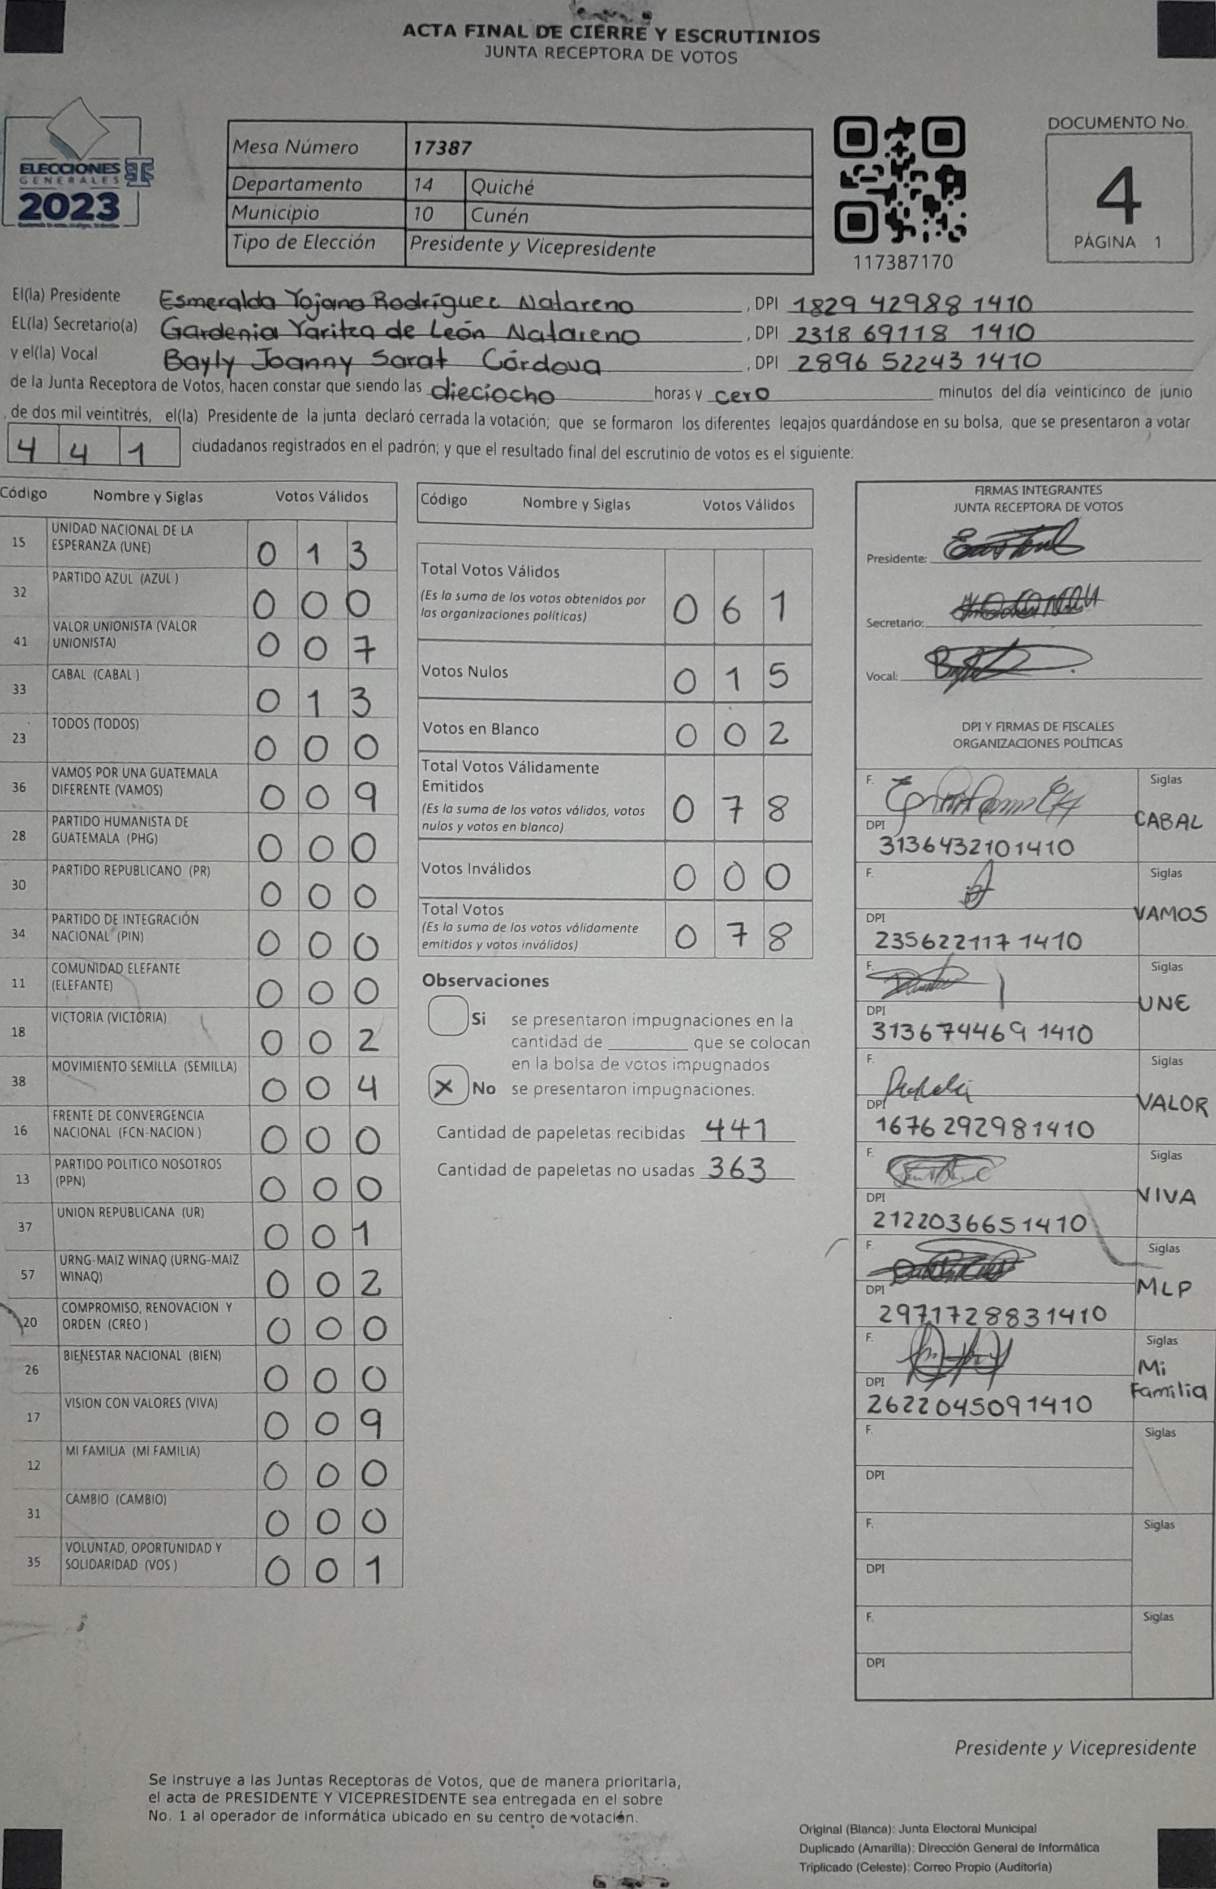 ACTA FINAL DE CIERRE Y ESCRUTINIOS
JUNTA RECEPTORA DE VOTOS
ELECCIONES
GENERALES
2023
Mesa Número 17387
Departamento 14 Quiché
Municipio 10 Cunén
Tipo de Elección Presidente y Vicepresidente
117387170
DOCUMENTO No.
4
PÁGINA 1
El(la) Presidente Esmeralda Yojana Rodríguez Natareno, DPI 1829 42988 1410
EL(la) Secretario(a) Gardenia Yaritza de León Natareno, DPI 2318 69118 1410
y el(la) Vocal Bayly Joanny Sarat Córdova, DPI 2896 52243 1410
de la Junta Receptora de Votos, hacen constar que siendo las dieciocho horas y cero minutos del día veinticinco de junio
de dos mil veintitrés, el(la) Presidente de la junta declaró cerrada la votación; que se formaron los diferentes legajos guardándose en su bolsa, que se presentaron a votar
4 4 1 ciudadanos registrados en el padrón; y que el resultado final del escrutinio de votos es el siguiente:
Código Nombre y Siglas Votos Válidos
15 UNIDAD NACIONAL DE LA
ESPERANZA (UNE) 0 1 3
32 PARTIDO AZUL (AZUL ) 0 0 0
41 VALOR UNIONISTA (VALOR
UNIONISTA) 0 0 7
33 CABAL (CABAL ) 0 1 3
23 TODOS (TODOS) 0 0 0
36 VAMOS POR UNA GUATEMALA
DIFERENTE (VAMOS) 0 0 9
28 PARTIDO HUMANISTA DE
GUATEMALA (PHG) 0 0 0
30 PARTIDO REPUBLICANO (PR) 0 0 0
34 PARTIDO DE INTEGRACIÓN
NACIONAL (PIN) 0 0 0
11 COMUNIDAD ELEFANTE
(ELEFANTE) 0 0 0
18 VICTORIA (VICTORIA) 0 0 2
38 MOVIMIENTO SEMILLA (SEMILLA) 0 0 4
16 FRENTE DE CONVERGENCIA
NACIONAL (FCN-NACION ) 0 0 0
13 PARTIDO POLITICO NOSOTROS
(PPN) 0 0 0
37 UNION REPUBLICANA (UR) 0 0 1
57 URNG-MAIZ WINAQ (URNG-MAIZ
WINAQ) 0 0 2
20 COMPROMISO, RENOVACION Y
ORDEN (CREO ) 0 0 0
26 BIENESTAR NACIONAL (BIEN) 0 0 0
17 VISION CON VALORES (VIVA) 0 0 9
12 MI FAMILIA (MI FAMILIA) 0 0 0
31 CAMBIO (CAMBIO) 0 0 0
35 VOLUNTAD, OPORTUNIDAD Y
SOLIDARIDAD (VOS ) 0 0 1
Código Nombre y Siglas Votos Válidos
Total Votos Válidos
(Es la suma de los votos obtenidos por
las organizaciones políticas) 0 6 1
Votos Nulos 0 1 5
Votos en Blanco 0 0 2
Total Votos Válidamente
Emitidos
(Es la suma de los votos válidos, votos
nulos y votos en blanco) 0 7 8
Votos Inválidos 0 0 0
Total Votos
(Es la suma de los votos válidamente
emitidos y votos inválidos) 0 7 8
Observaciones
Si se presentaron impugnaciones en la
cantidad de ________ que se colocan
en la bolsa de votos impugnados
X No se presentaron impugnaciones.
Cantidad de papeletas recibidas 441
Cantidad de papeletas no usadas 363
FIRMAS INTEGRANTES
JUNTA RECEPTORA DE VOTOS
Presidente:
Secretario:
Vocal:
DPI Y FIRMAS DE FISCALES
ORGANIZACIONES POLÍTICAS
F. Siglas
CABAL
DPI
3136432101410
F. Siglas
VAMOS
DPI
235622117 1410
F. Siglas
UNE
DPI
313674469 1410
F. Siglas
VALOR
DPI
1676 292981410
F. Siglas
VIVA
DPI
2122036651410
F. Siglas
MLP
DPI
2971728831410
F. Siglas
Mi
Familia
DPI
2622045091410
F. Siglas
DPI
F. Siglas
DPI
F. Siglas
DPI
Presidente y Vicepresidente
Se instruye a las Juntas Receptoras de Votos, que de manera prioritaria,
el acta de PRESIDENTE Y VICEPRESIDENTE sea entregada en el sobre
No. 1 al operador de informática ubicado en su centro de votación.
Original (Blanca): Junta Electoral Municipal
Duplicado (Amarilla): Dirección General de Informática
Triplicado (Celeste): Correo Propio (Auditoría)